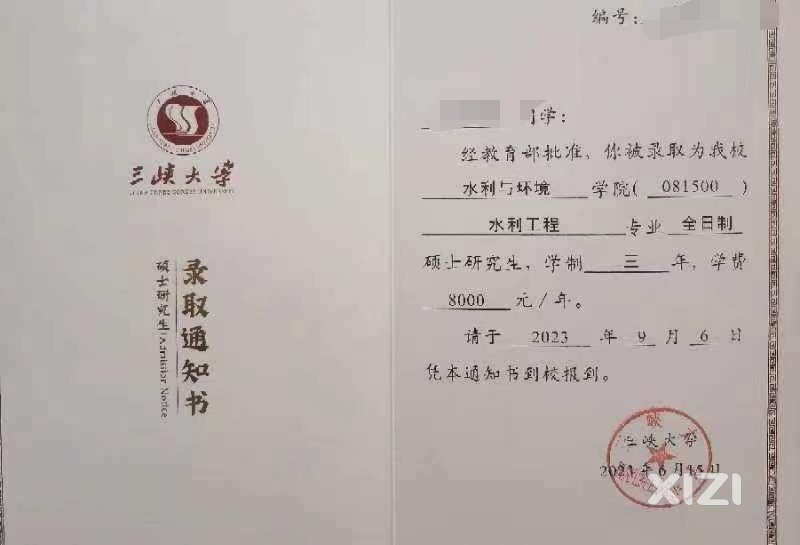 三峡大学
录取通知书
硕士研究生/Admission Notice
编号:
同学:
经教育部批准，你被录取为我校
水利与环境 学院( 081500 )
水利工程 专业 全日制
硕士研究生，学制 三 年，学费
8000 元/年。
请于 2023 年 9 月 6 日
凭本通知书到校报到。
三峡大学
2023年6月15日
XIZI